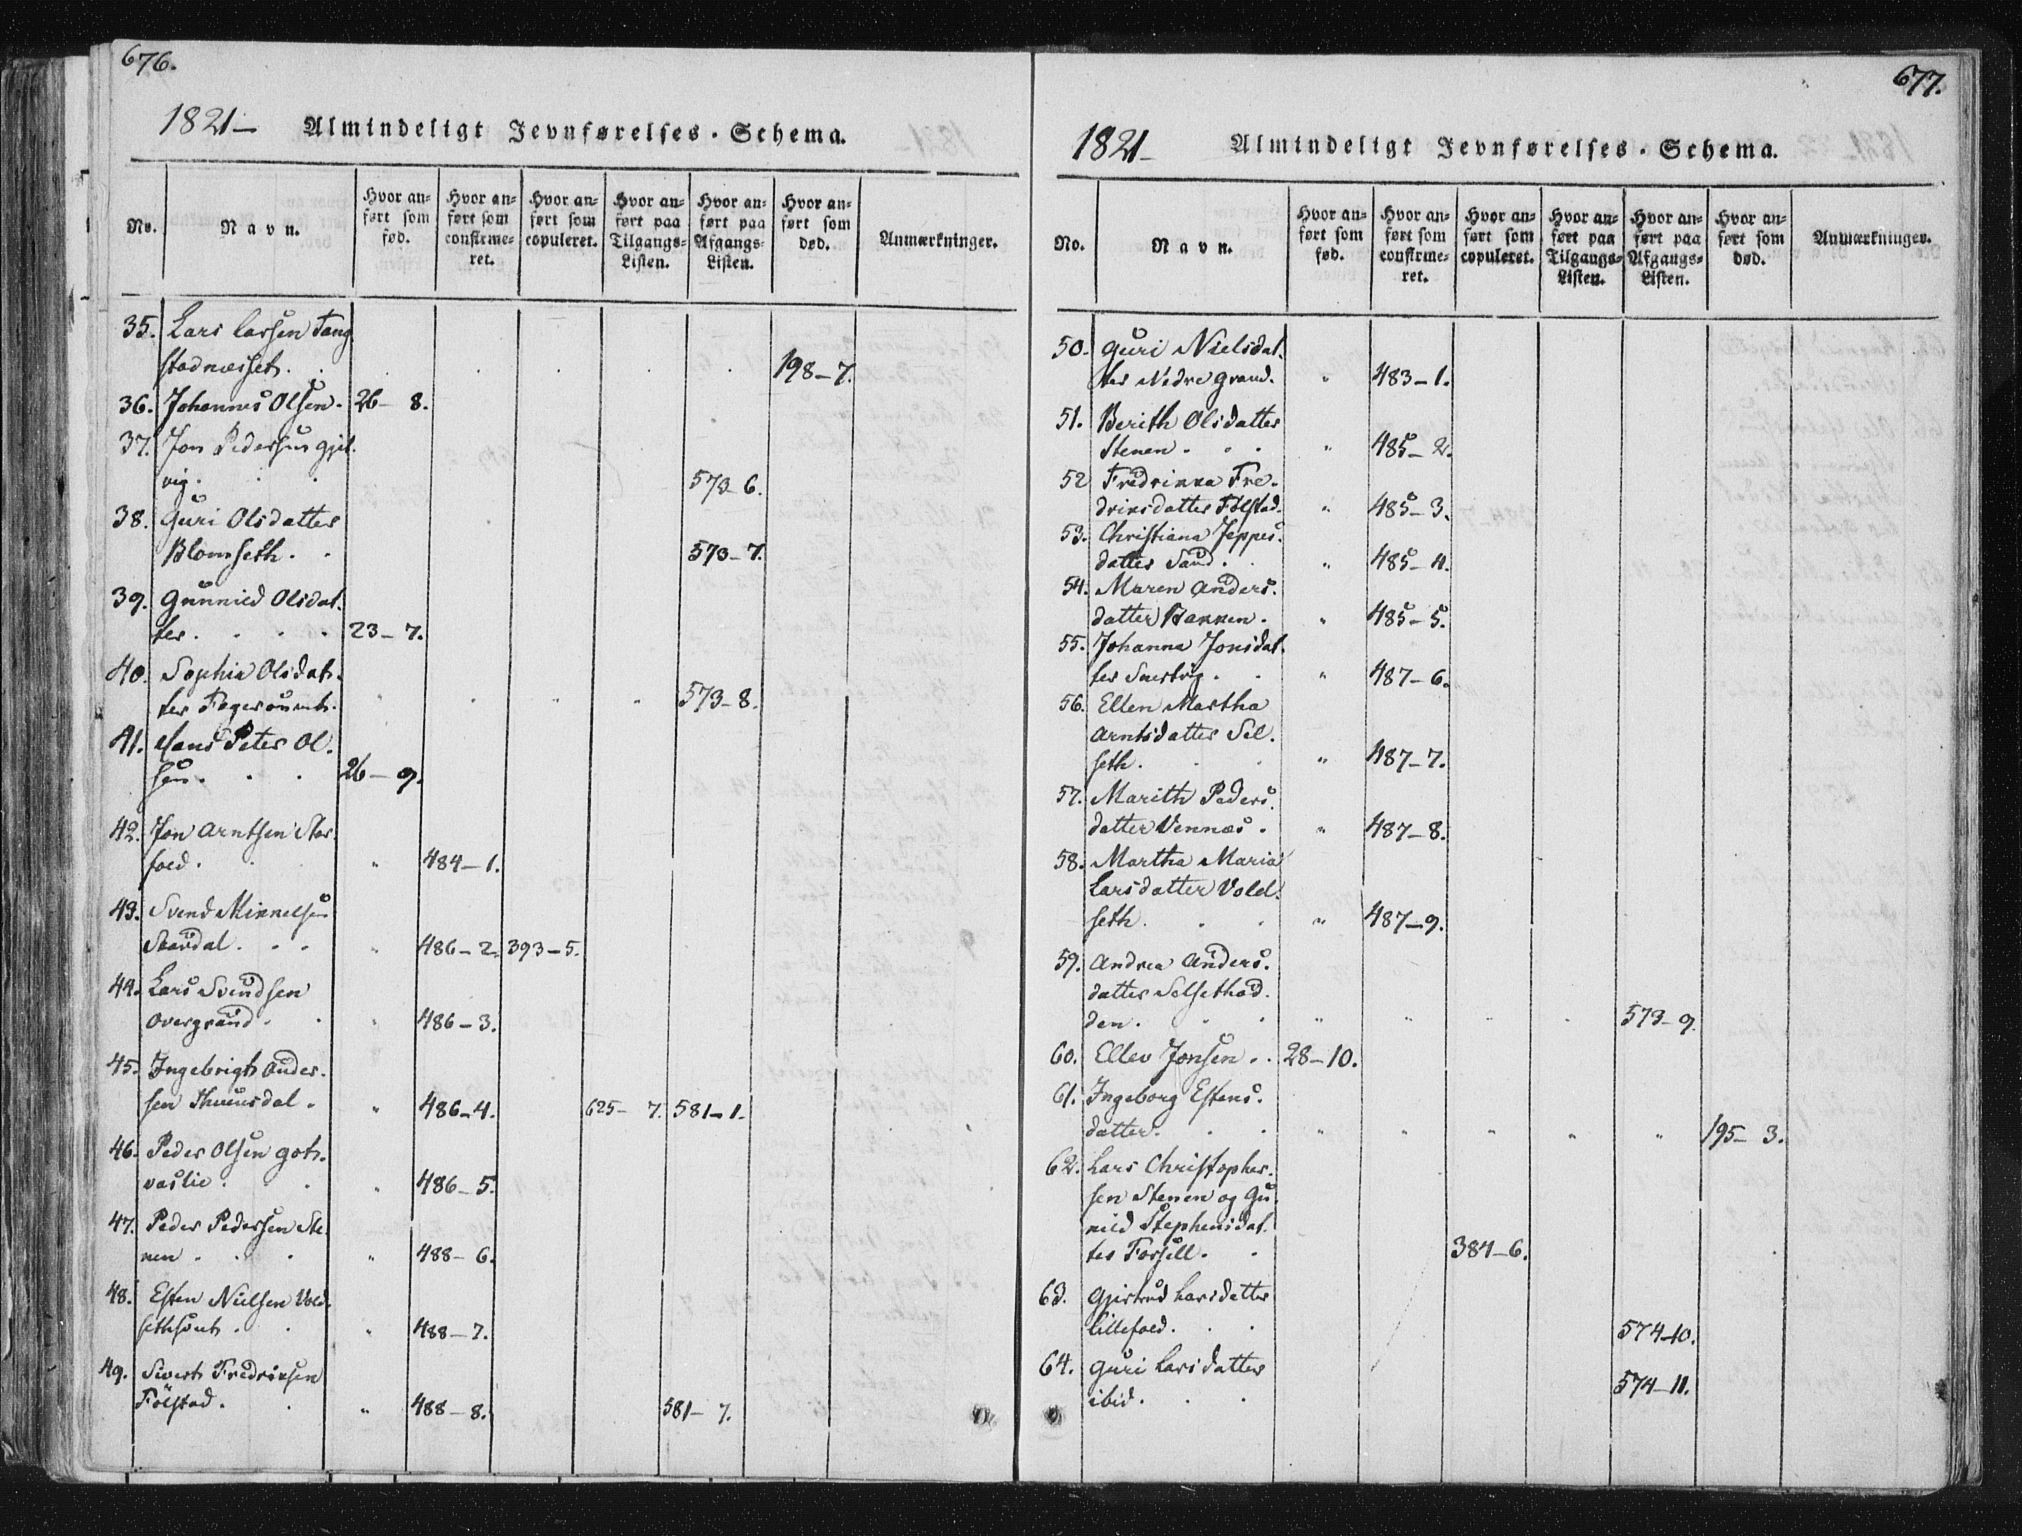 676.
1821— Almindeligt Jevnførelses-Schema.
No.
Navn.
Hvor anført som fød.
Hvor anført som confirmeret.
Hvor anført som copuleret.
Hvor anført paa Tilgangs-Listen.
Hvor anført paa Afgangs-Listen.
Hvor anført som død.
Anmærkninger.
35. Lars Larsen Tang
stadnæsset. 198-7.
36. Johannes Olsen. 26-8.
37. Jon Pedersen Gjel.
vig. 573-6.
38. Guri Olsdatter
Blomseth. 573-7.
39. Gunnild Olsdat.
ter. 23-7.
40. Sophia Olsdat.
ter 573-8.
41. Hans Peter Ol.
sen. 26-9.
42. Jon Arntsen Stor
foed. " 484-1.
43. Svend Mikkelsen
" 486-2. 393-5.
44. Lars Svendsen
Overgraud. " 486-3.
45. Ingebrigt Ander.
sen " 486-4. 625-7. 581-1.
46. Peder Olsen Got.
vaslie. " 486-5.
47. Peder Pedersen Ste.
nen. " 488-6.
48. Esten Nielsen Vold.
" 488-7.
49. Sivert Fredriksen
Fölstad. " 488-8. 581-7.
677.
1821— Almindeligt Jevnførelses-Schema.
No.
Navn.
Hvor anført som fød.
Hvor anført som confirmeret.
Hvor anført som copuleret.
Hvor anført paa Tilgangs-Listen.
Hvor anført paa Afgangs-Listen.
Hvor anført som død.
Anmærkninger.
50. Guri Nielsdat.
ter Nedre Graud. " 483-1.
51. Berith Olsdatter
Stenen. " 485-2.
52 Fredrikka Fre.
driksdatter Fölstad. " 485-3.
53. Christiana Jeppes.
datter Sand. " 485-4.
54. Maren Anders.
datter Bakken. " 485-5.
55. Johanna Jonsdat.
ter " 487-6.
56. Ellen Martha
Arntsdatter Sel.
seth. " 487-7.
57. Marith Peders.
datter Vennæs. " 487-8.
58. Martha Maria
Larsdatter Vold.
seth. " 487-9.
59. Andrea Anders.
datter Selsethød.
den. " " " 573-9.
60. Ellev Jonsen. 28-10.
61. Ingeborg Estens.
datter. " " " " " 195-3.
62. Lars Christopher.
sen Stenen og Gu
nild Stephensdat.
ter Forsell. 384-6.
63. Gjertrud Larsdatter
Lillefoed. 574-10.
64. Guri Larsdatter
ibid. 574-11.